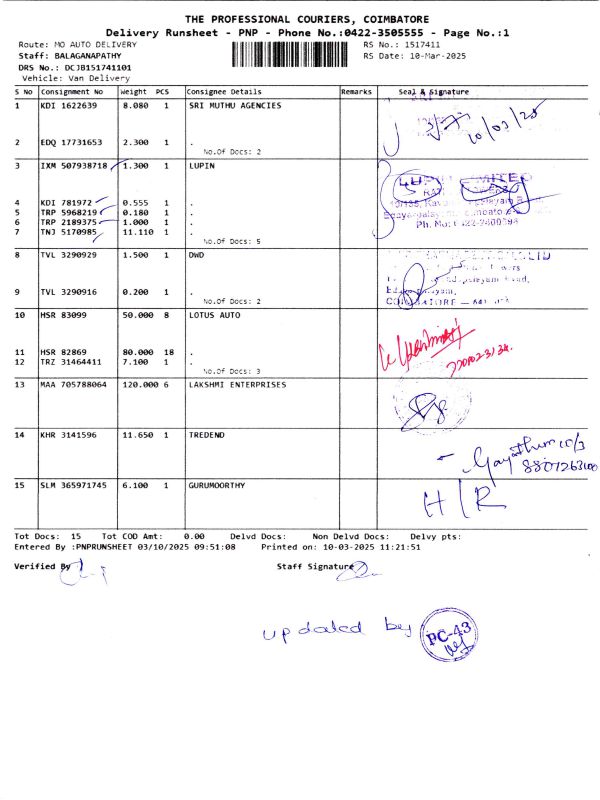 THE PROFESSIONAL COURIERS, COIMBATORE
Delivery Runsheet - PNP - Phone No.:0422-3505555 - Page No.:1
Route: MO AUTO DELIVERY RS No.: 1517411
Staff: BALAGANAPATHY RS Date: 10-Mar-2025
DRS No.: DCJB151741101
Vehicle: Van Delivery
S No Consignment No Weight PCS Consignee Details Remarks Seal & Signature
1 KDI 1622639 8.080 1 SRI MUTHU AGENCIES
10/03/25
2 EDQ 17731653 2.300 1 .
No.Of Docs: 2
3 IXM 507938718 1.300 1 LUPIN
LUPIN LIMITED
4 KDI 781972 0.555 1 .
5 TRP 5968219 0.180 1 .
6 TRP 2189375 1.000 1 .
7 TNJ 5170985 11.110 1 .
No.Of Docs: 5
8 TVL 3290929 1.500 1 DWD
9 TVL 3290916 0.200 1 .
No.Of Docs: 2
10 HSR 83099 50.000 8 LOTUS AUTO
11 HSR 82869 80.000 18 .
12 TRZ 31464411 7.100 1 .
No.Of Docs: 3
13 MAA 705788064 120.000 6 LAKSHMI ENTERPRISES
14 KHR 3141596 11.650 1 TREDEND
10/3
8807263100
15 SLM 365971745 6.100 1 GURUMOORTHY
H/R
Tot Docs: 15 Tot COD Amt: 0.00 Delvd Docs: Non Delvd Docs: Delvy pts:
Entered By :PNPRUNSHEET 03/10/2025 09:51:08 Printed on: 10-03-2025 11:21:51
Verified By Staff Signature
updated by PC-43